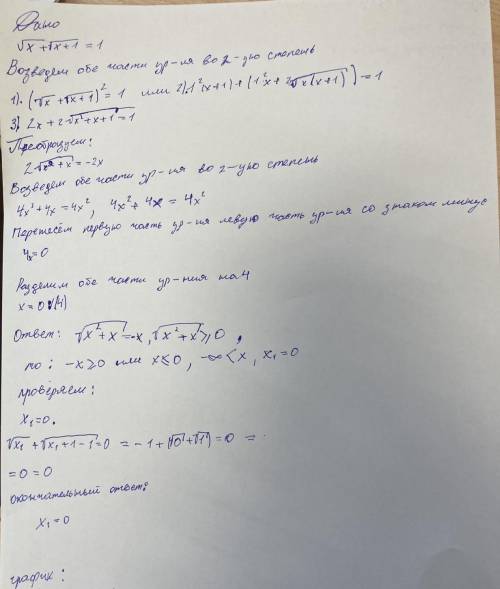 Дано
√x + √x+1 = 1
Возведем обе части ур-ия во 2-ую степень
1). (√x + √x+1)² = 1 или 2). 1²(x+1) + (1²x + 2√x(x+1)) = 1
3). 2x + 2√x²+x+1 = 1
Преобразуем:
2√x²+x = -2x
Возведем обе части ур-ия во 2-ую степень
4x²+4x = 4x², 4x²+4x = 4x²
Перенесём первую часть ур-ия левую часть ур-ия со знаком минус
4x=0
Разделим обе части ур-ния на 4
x = 0 (4)
Ответ: √x²+x = -x, √x²+x ≥ 0,
то: -x≥0 или x≤0, -∞<x, x₁=0
проверяем:
x₁=0.
√x₁ + √x₁+1-1=0 = -1+(√0+√1)=0 =
=0=0
окончательный ответ:
x₁=0
график: